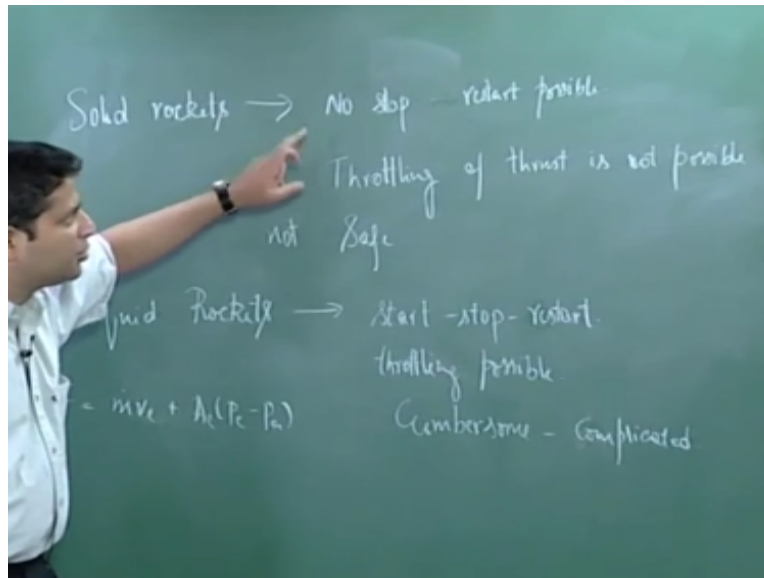 Solid rockets → No stop - restart possible
Throttling of thrust is not possible
not Safe
quid Rockets → Start -stop- restart.
throttling possible.
= ṁve + Ae(Pe - Pa)
Cumbersome - Complicated